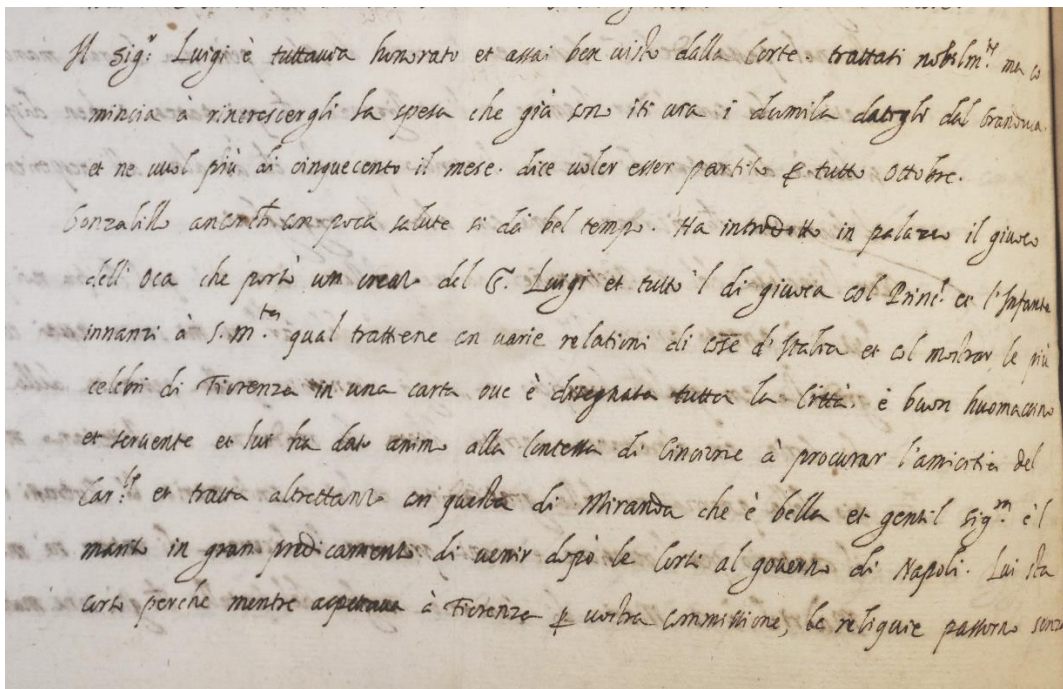 Il Sig.r Luigi è tuttavia honorato et assai ben visto dalla Corte. trattati nobilm.te ma co
mincia à rincrescergli la spesa che già son iti via i dumila datogli dal Granduca.
et ne vuol più di cinquecento il mese. dice voler esser partito p tutto Ottobre.
Gonzalillo ancorch con poca salute si dà bel tempo. Ha introdotto in palazzo il giuoco
dell'oca che portò un creato del S. Luigi et tutto 'l di giuoca col Princ.e et l'Infanta
innanzi à S. M.tà qual trattiene con varie relationi di cose d'Italia et col mostrar le più
celebri di Fiorenza in una carta ove è disegnata tutta la Città. è buon huomaccino
et servente et lui ha dato animo alla Contessa di à procurar l'amicitia del
Car.le et tratta altrettanto con questa di Miranda che è bella et gentil Sig.ra è 'l
marito in gran predicamento di venir dopò le Corti al governo di Napoli. Lui sta
certo perche mentre aspettava à Fiorenza p vostra commissione, le reliquie passorno senza